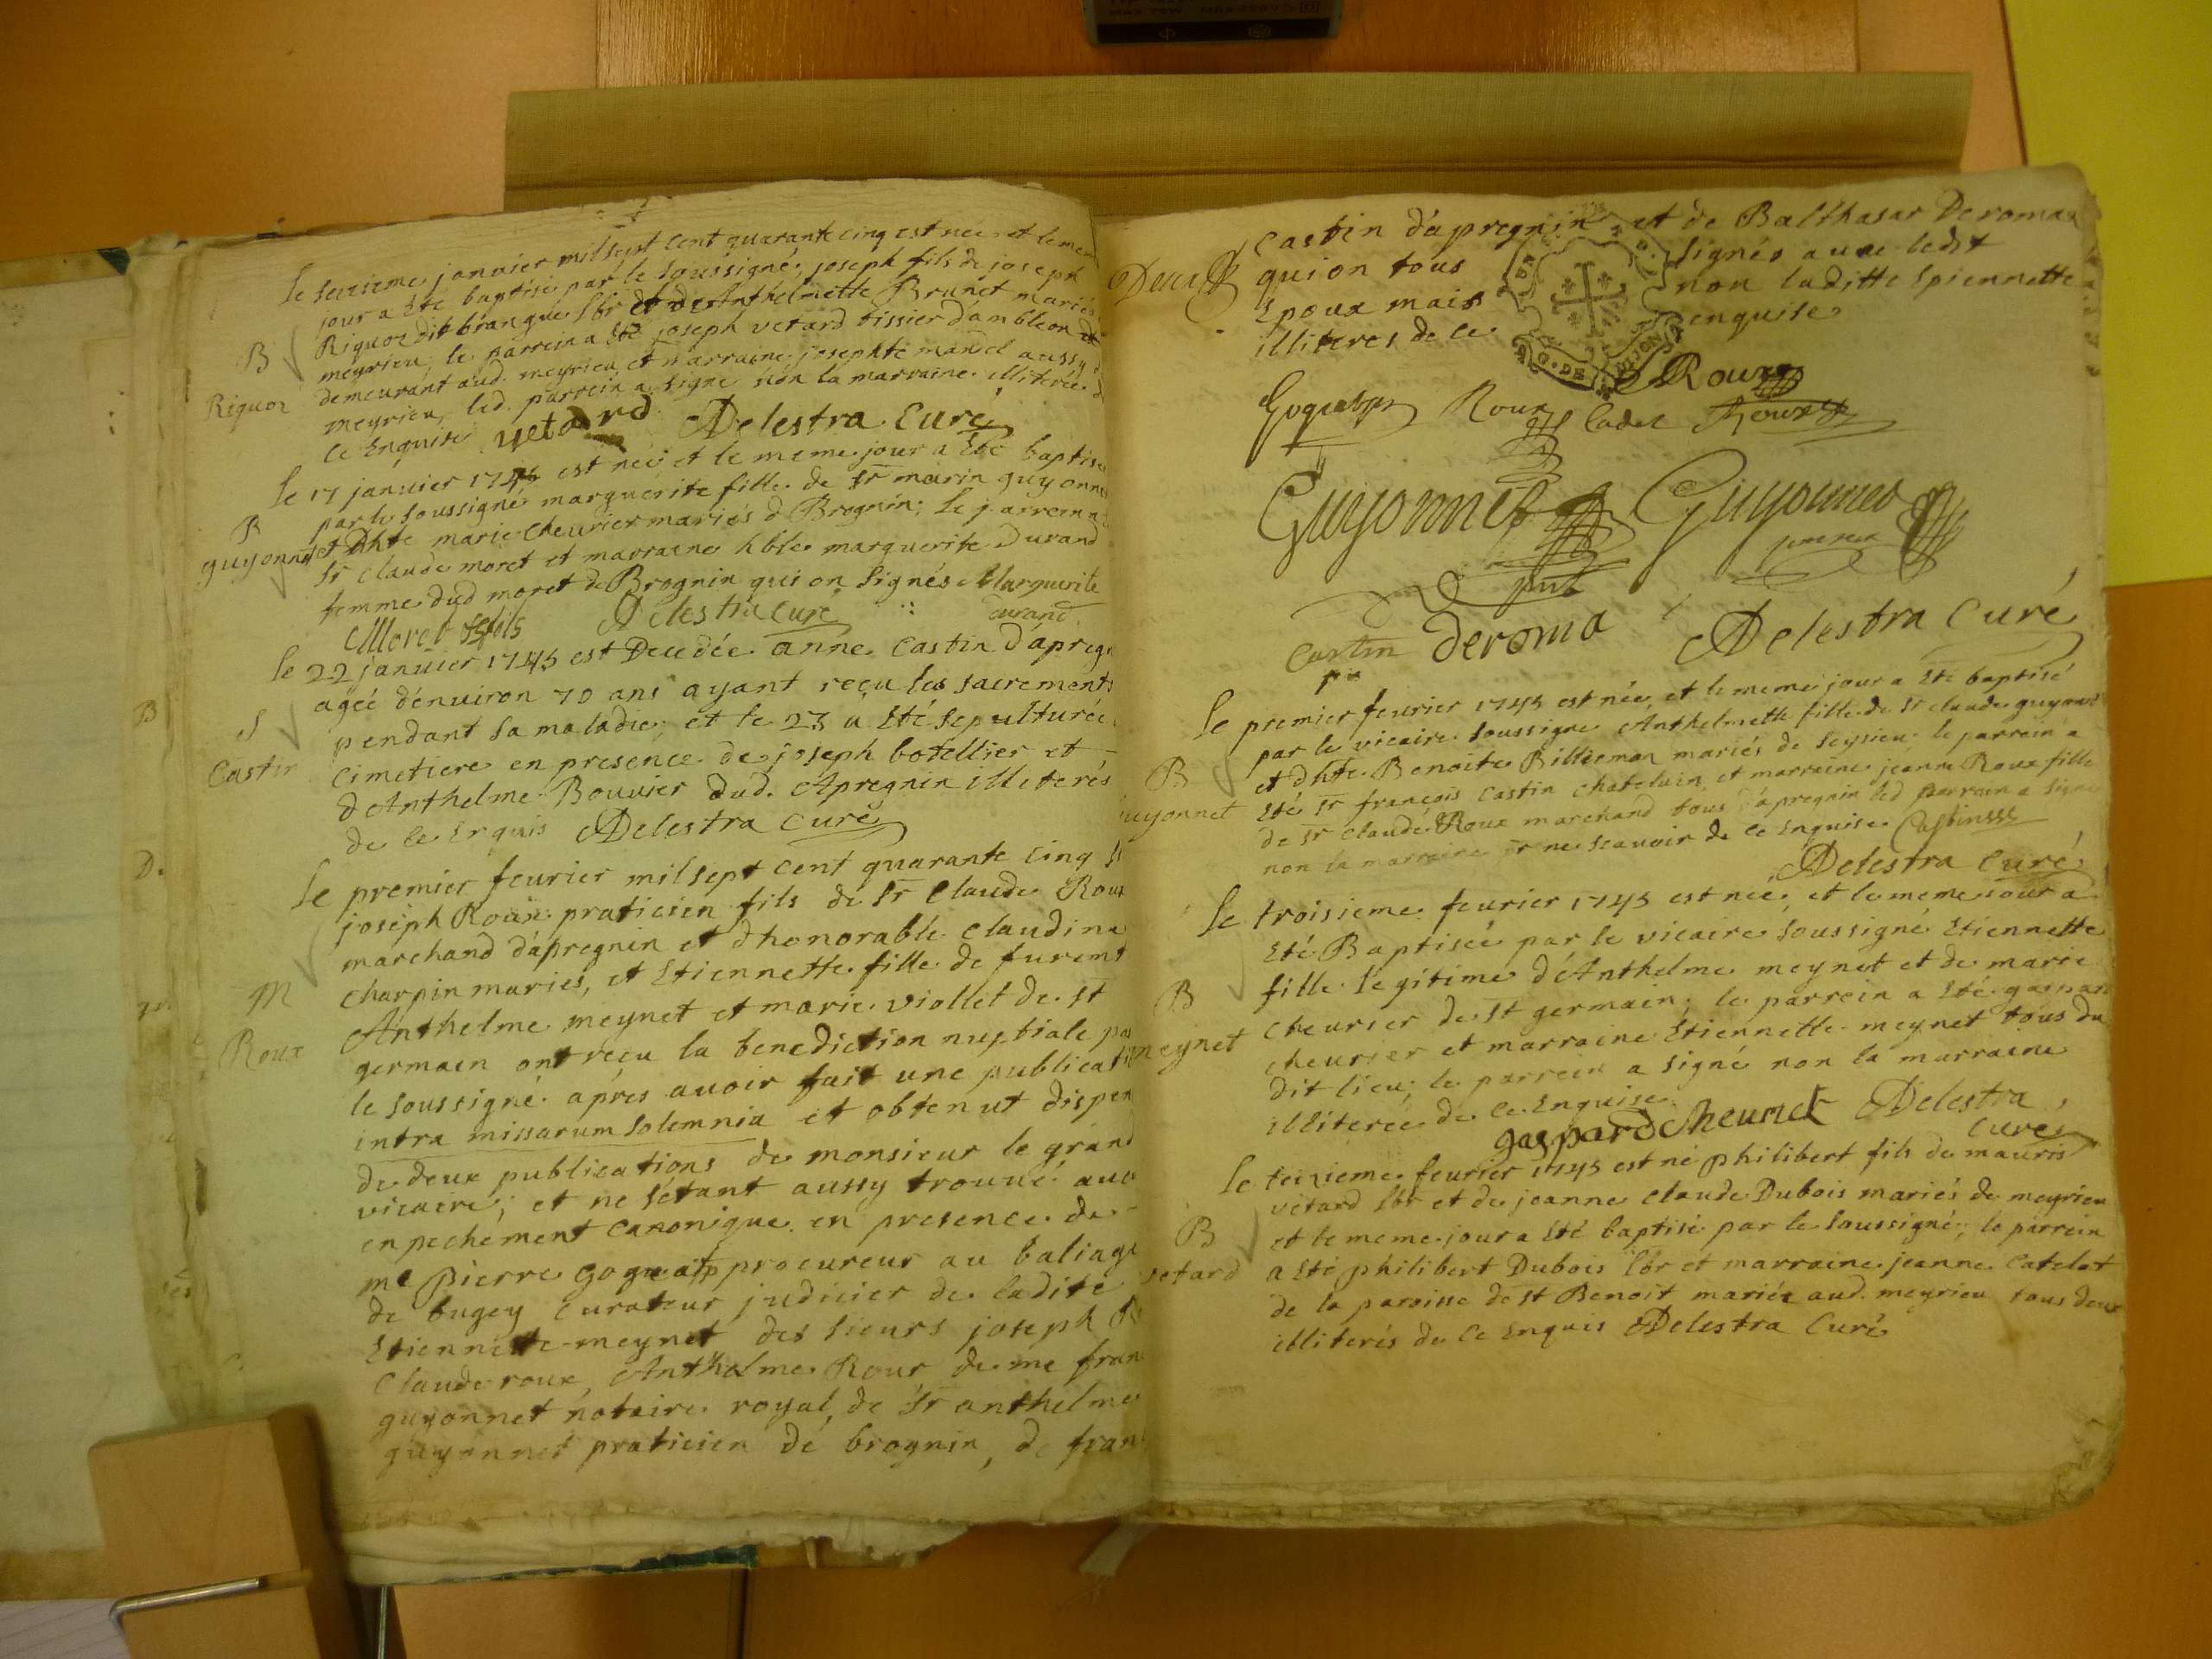 Le seizieme janvier mil sept cent quarante cinq est née et le mem
jour a Eté baptisé par le soussigné, joseph fils de joseph
Riquoz dit branque lbr et de Anthelmette Brunet mariés
B
meyrieu, le parrein a Eté joseph vetard tissier d'ambleon et
Riquoz
demeurant aud. meyrieu et marraine josephte manel aussy d
meyrieu, led. parrein a signé non la marraine illiterée d
ce Enquise vetard Delestra Curé
Le 17 janvier 1745 est née et le meme jour a Eté baptisé
par le soussigné marguerite fille de Sr marin guyonnet
B
guyonnet
et dhte marie cheurier mariés d Brognin; le parrein a
Sr claude moret et marraine hble marguerite Durand
femme dud moret de Brognin qui on signés Marguerite
durand
CMoret fils Delestra Curé
Le 22 janvier 1745 est Decedée anne Castin d'apregn
ageé d'énuiron 70 ans ayant reçu les sacrements
S
pendant sa maladie, et le 23 a Eté sepulturée
Castin
Cimetiere en presence de joseph botellier et
d'Anthelme Bouvier dud. Apregnin illiterés
de ce Enquis Delestra Curé
Le premier feurier mil sept cent quarante cinq Sr
joseph Roux praticien fils de Sr Claude Roux
marchand d'apregnin et d'honorable Claudine
M
Charpin mariés, et Etiennette fille de furent
Roux
Anthelme meynet et marie viollet de St
germain ont reçu la benediction nuptiale par
le soussigné après auoir fait une publicati
intra missarum solemnia et obtenut dispen
de deux publications de monsieur le grand
vicaire; et ne s'étant aussy trouué auc
enpechement Canonique en presence de
me Pierre goguat procureur au baliage
de bugey Curateur judicier de ladite
Etiennette meynet des sieurs joseph R
Claude roux, Anthelme Roux, de me fran
guyonnet notaire royal, de Sr anthelme
guyonnet praticien dé brognin, de fran
Castin d'apregnin et de Balthasar Deroma
qui on tous signés auec ledit
Epoux mais non laditte Epiennette
illiteres de ce enquise
G. DE DIJON
Roux
Roux Cadet Roux
Guyonnet Guyonnet
Castin deroma Delestra Curé
Le premier feurier 1745 est née, et le meme jour a Eté baptisé
par le vicaire soussigné Anthelmette fille de Sr claude guyonnet
B
et dhte Benoite Billiemaz mariés de seysieu le parrein a
guyonnet
Eté Sr françois Castin Chatelain, et marraine jeanne Roux fille
de Sr Claude Roux marchand tous d'apregnin led parrain a signé
non la marraine pr ne scauoir de ce Enquise Castin
Delestra Curé
Le troisieme feurier 1745 est née, et le meme jour a
Eté Baptisée par le vicaire soussigné Etiennette
B
fille legitime d'Anthelme meynet et de marie
meynet
cheurier de St germain; le parrein a Eté gaspar
cheurier et marraine Etiennette meynet tous du
dit lieu; le parrein a signé non la marraine
illiterée de ce Enquise
gaspard Cheurier Delestra
Curé
Le treizieme feurier 1745 est né philibert fils de mauris
vetard lbr et de jeanne claude Dubois mariés de meyrieu
B
et le meme jour a Eté baptisé par le soussigné, le parrein
vetard
a Eté philibert Dubois lbr et marraine jeanne Catelot
de la paroisse de St Benoit mariée aud. meyrieu tous deux
illiterés de ce Enquis Delestra Curé